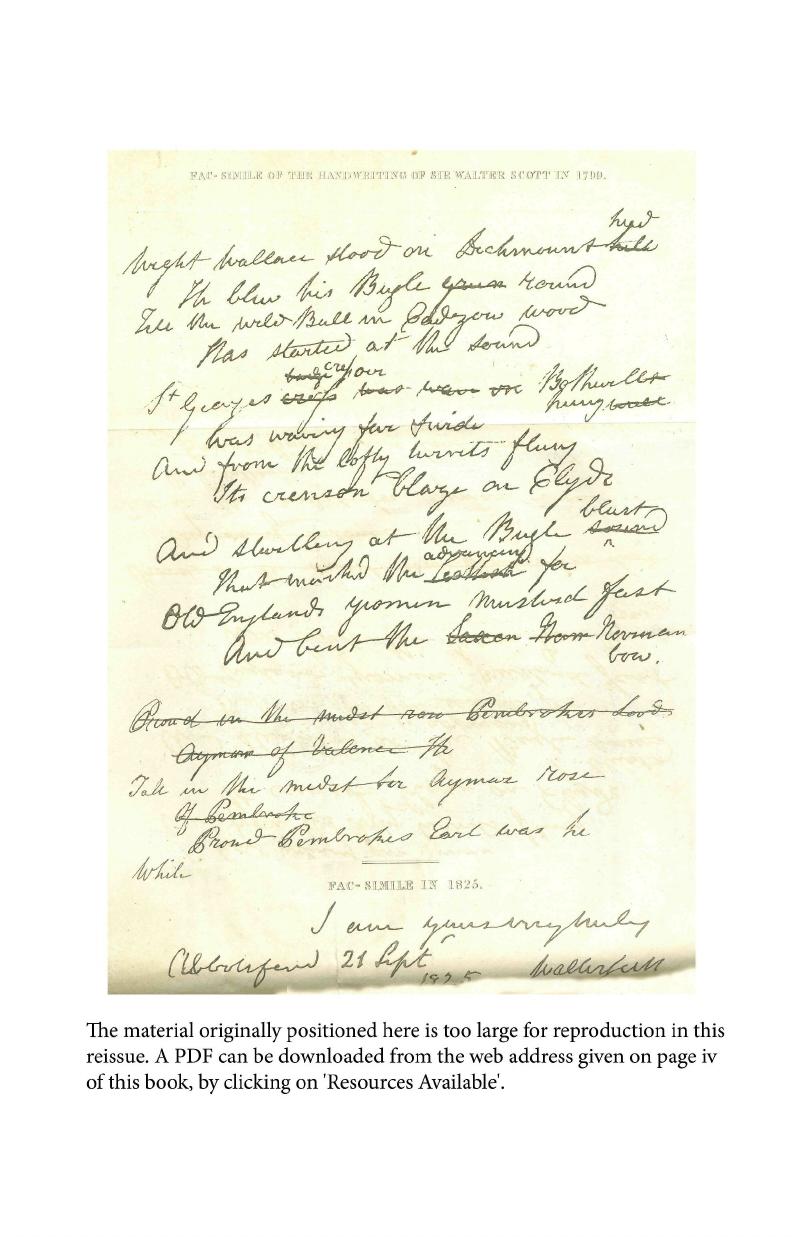 FAC-SIMILE OF THE HANDWRITING OF SIR WALTER SCOTT IN 1799.
hed
Wight Wallace stood on Dechmount hill
He blew his Bugle round
Till the wild Bull in Cadyow wood
Has started at the sound
cross oer
St Georges cross was wave on Bothwells
hung
Was waving far & wide
And from the lofty turrets flung
Its crimson blaze on Clyde
blast
And swelling at the Bugle sound
advancing
That marked the Scottish foe
Old Englands yeomen musterd fast
And bent the Saxon Norman
bow.
Proud in the midst rose Pembrokes Lord
Aymar of Valence He
Tall in the midst Sir Aymar rose
Of Pembroke
Proud Pembrokes Earl was he
While
FAC-SIMILE IN 1825.
I am yours very truly
Abbotsford 21 Sept
1825 Walter Scott
The material originally positioned here is too large for reproduction in this
reissue. A PDF can be downloaded from the web address given on page iv
of this book, by clicking on 'Resources Available'.